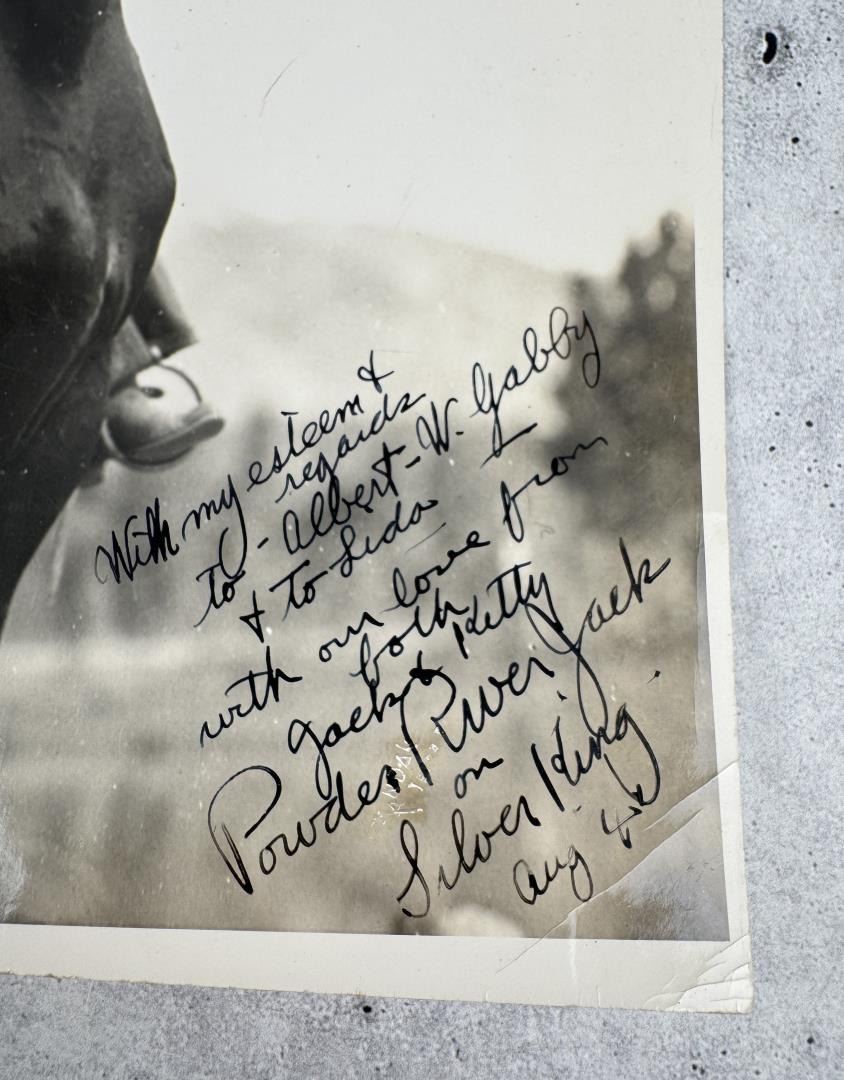 With my esteem &
regards
to - Albert - W. Gabby
& to Lida
with our love from
both
Jack & Kitty
Powder River Jack
on
Silver King.
Aug 4